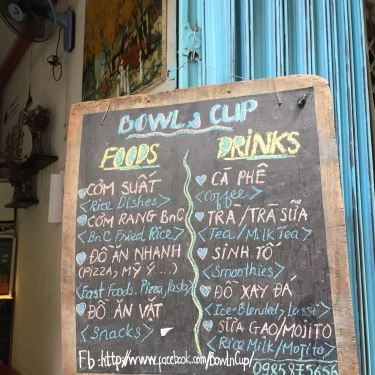 BOWL & CUP
FOODS
CƠM SUẤT
<Rice Dishes>
CƠM RANG BnC
<BnC Fried Rice>
ĐỒ ĂN NHANH
(PIZZA, MỲ Ý...)
<Fast Foods, Pizza, Pasta>
ĐỒ ĂN VẶT
<Snacks>
DRINKS
CÀ PHÊ
<Coffee>
TRÀ/TRÀ SỮA
<Tea/Milk Tea>
SINH TỐ
<Smoothies>
ĐỒ XAY ĐÁ
<Ice-Blended, Lassi>
SỮA GẠO/MOJITO
<Rice Milk/Mojito>
Fb: http://www.facebook.com/BowlnCup/
0985875656